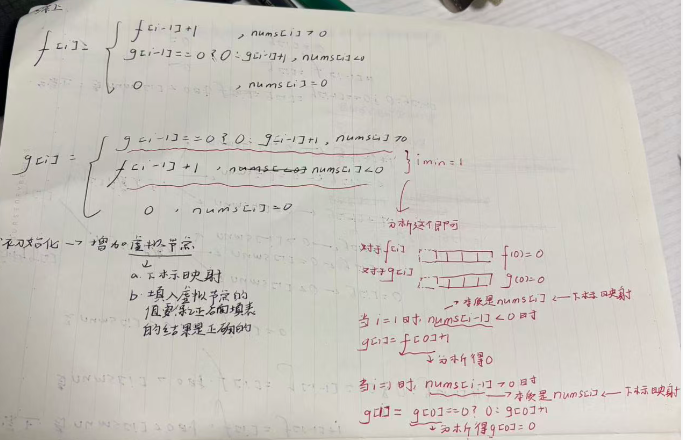 综上
f[i]= { f[i-1]+1 , nums[i]>0
g[i-1]==0?0:g[i-1]+1, nums[i]<0
0 , nums[i]=0
g[i]= { g[i-1]==0?0:g[i-1]+1, nums[i]>0
f[i-1]+1 , nums[i]<0 } imin=1
0 , nums[i]=0
分析这个即可
初始化→增加虚拟节点
a.下标映射
b.填入虚拟节点的
值要保证后面填表
的结果是正确的
对于f[i] f(0)=0
对于g[i] g(0)=0
→本质是nums[i]←下标映射
当i=1时,nums[i-1]<0时
g[i]=f[0]+1
↓分析得0
当i=1时,nums[i-1]>0时
→本质是nums[i]←下标映射
g[1]=g[0]==0?0:g[0]+1
↓分析得g[0]=0